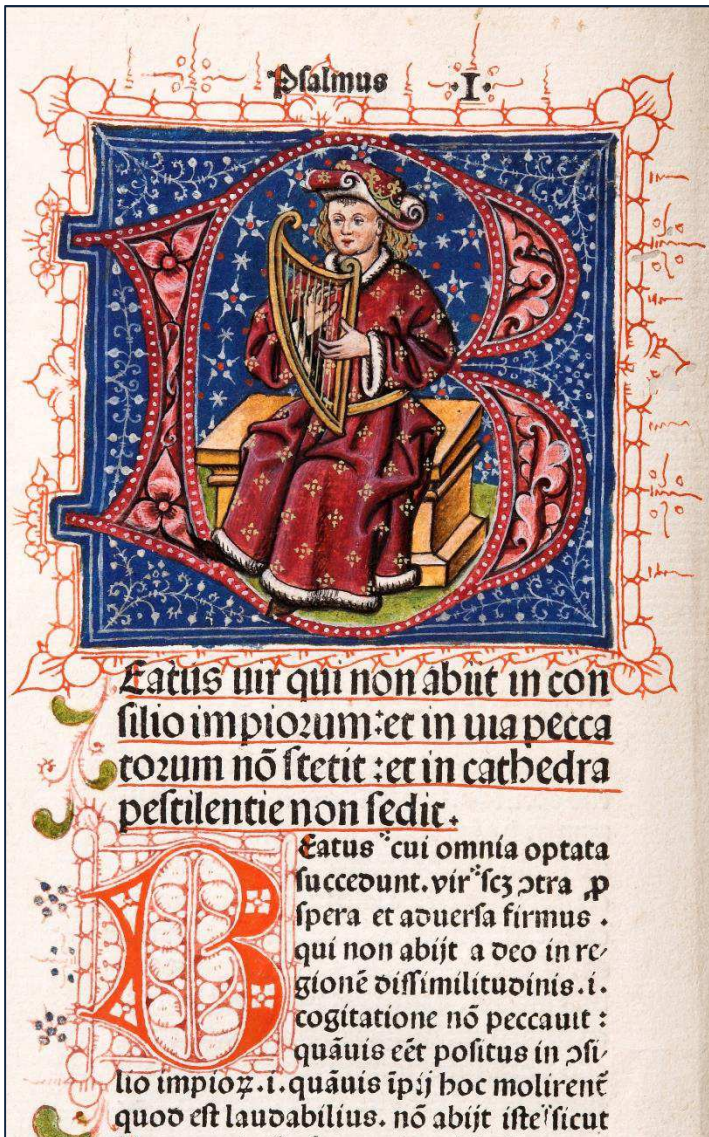 Psalmus ·I·
Eatus uir qui non abiit in con
silio impiorum: et in uia pecca
torum nō stetit: et in cathedra
pestilentie non sedit.
Beatus cui omnia optata
succedunt. vir scʒ ↄtra ꝓ
spera et aduersa firmus.
qui non abijt a deo in re⸗
gionē dissimilitudinis .i.
cogitatione nō peccauit:
quāuis eēt positus in ↄsi⸗
lio impioꝝ .i. quāuis īpij hoc molirent̄
quod est laudabilius. nō abijt iste sicut